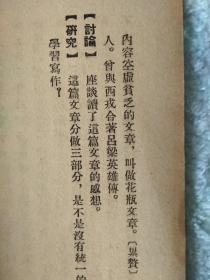 內容空虛貧乏的文章，叫做花瓶文章。〔累贅〕
人。曾與西戎合著呂梁英雄傳。
【討論】座談讀了這篇文章的感想。
【研究】這篇文章分做三部分，是不是沒有統一的
學習寫作？